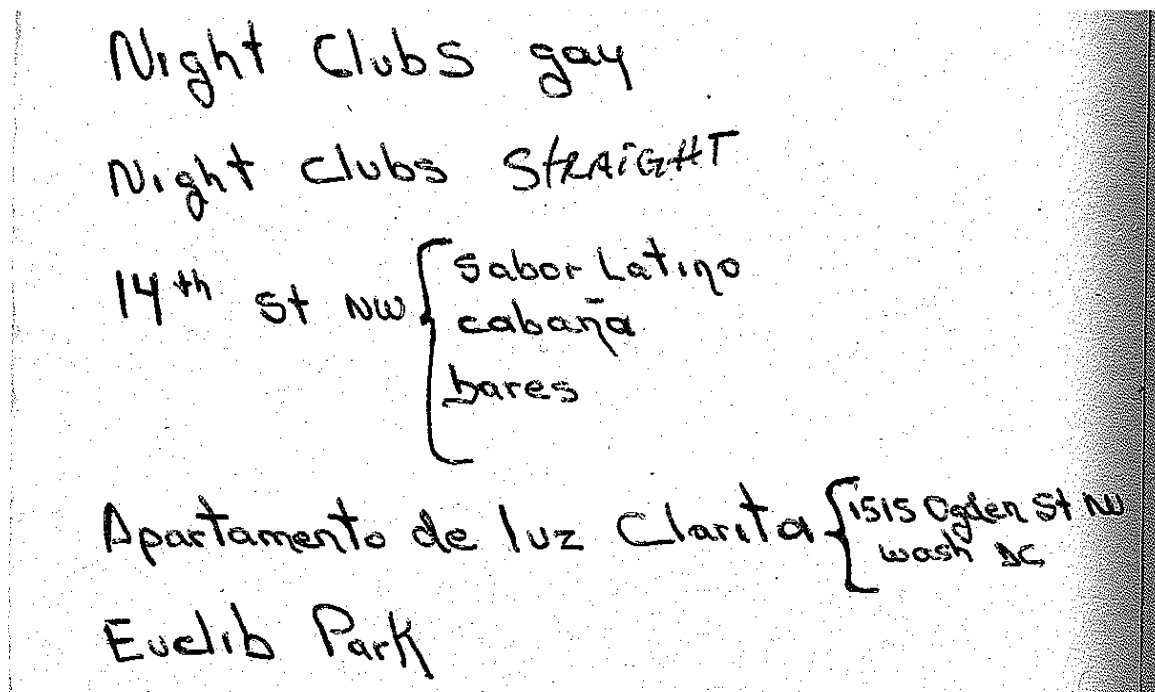 Night Clubs gay
Night clubs STRAIGHT
14th St NW { Sabor Latino
cabaña
bares
Apartamento de luz Clarita { 1515 Ogden St NW
wash DC
Euclib Park